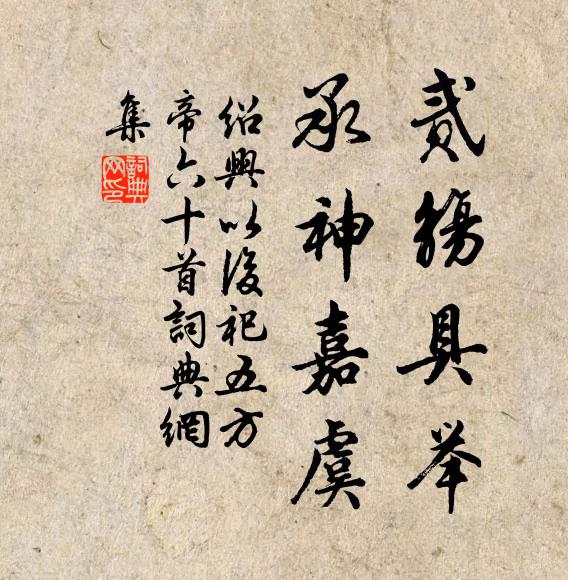 贰觞具举
承神嘉虞
绍兴以后祀五方
帝六十首词典网
集
词典网印